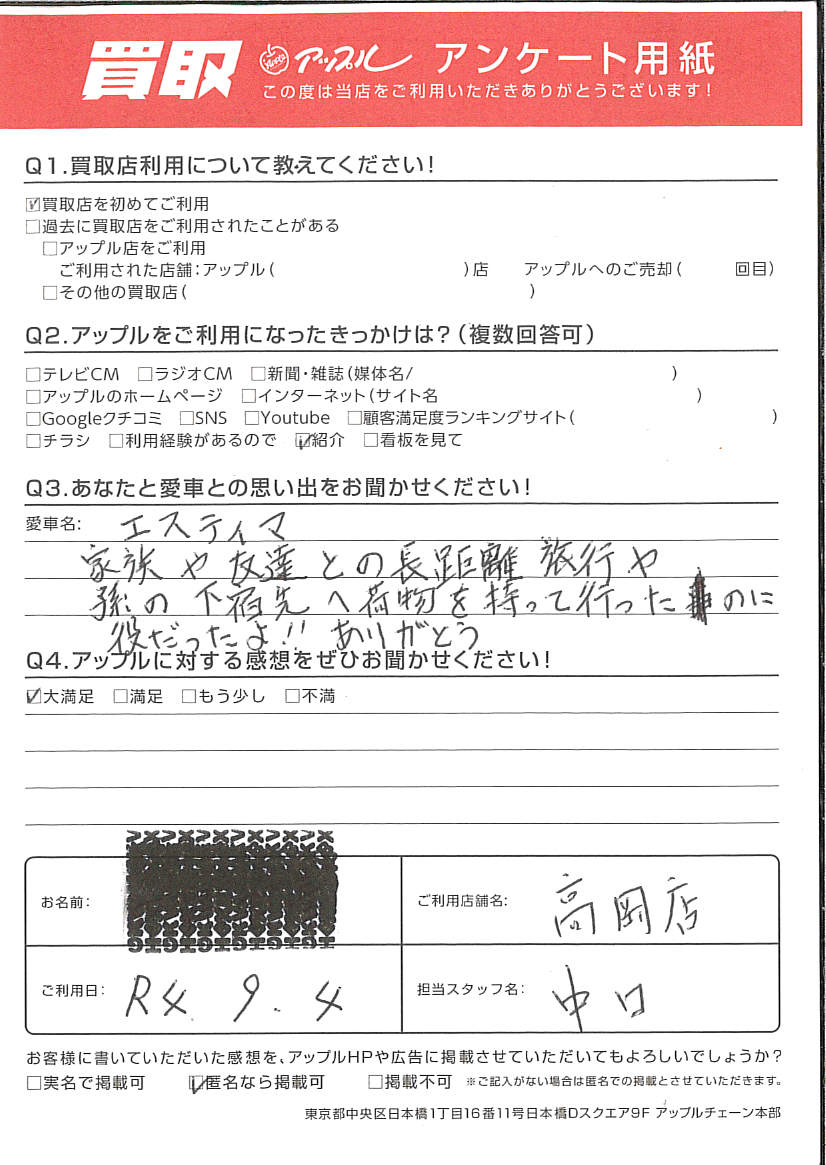 買取 アップル アンケート用紙
この度は当店をご利用いただきありがとうございます!
Q1.買取店利用について教えてください!
☑買取店を初めてご利用
□過去に買取店をご利用されたことがある
□アップル店をご利用
ご利用された店舗:アップル( )店 アップルへのご売却( 回目)
□その他の買取店( )
Q2.アップルをご利用になったきっかけは?(複数回答可)
□テレビCM □ラジオCM □新聞・雑誌(媒体名/ )
□アップルのホームページ □インターネット(サイト名 )
□Googleクチコミ □SNS □Youtube □顧客満足度ランキングサイト( )
□チラシ □利用経験があるので ☑紹介 □看板を見て
Q3.あなたと愛車との思い出をお聞かせください!
愛車名: エスティマ
家族や友達との長距離旅行や
孫の下宿先へ荷物を持って行ったのに
役だったよ!! ありがとう
Q4.アップルに対する感想をぜひお聞かせください!
☑大満足 □満足 □もう少し □不満
お名前:
ご利用店舗名: 高岡店
ご利用日: R4. 9. 4
担当スタッフ名: 中口
お客様に書いていただいた感想を、アップルHPや広告に掲載させていただいてもよろしいでしょうか?
□実名で掲載可 ☑匿名なら掲載可 □掲載不可 ※ご記入がない場合は匿名での掲載とさせていただきます。
東京都中央区日本橋1丁目16番11号日本橋Dスクエア9F アップルチェーン本部